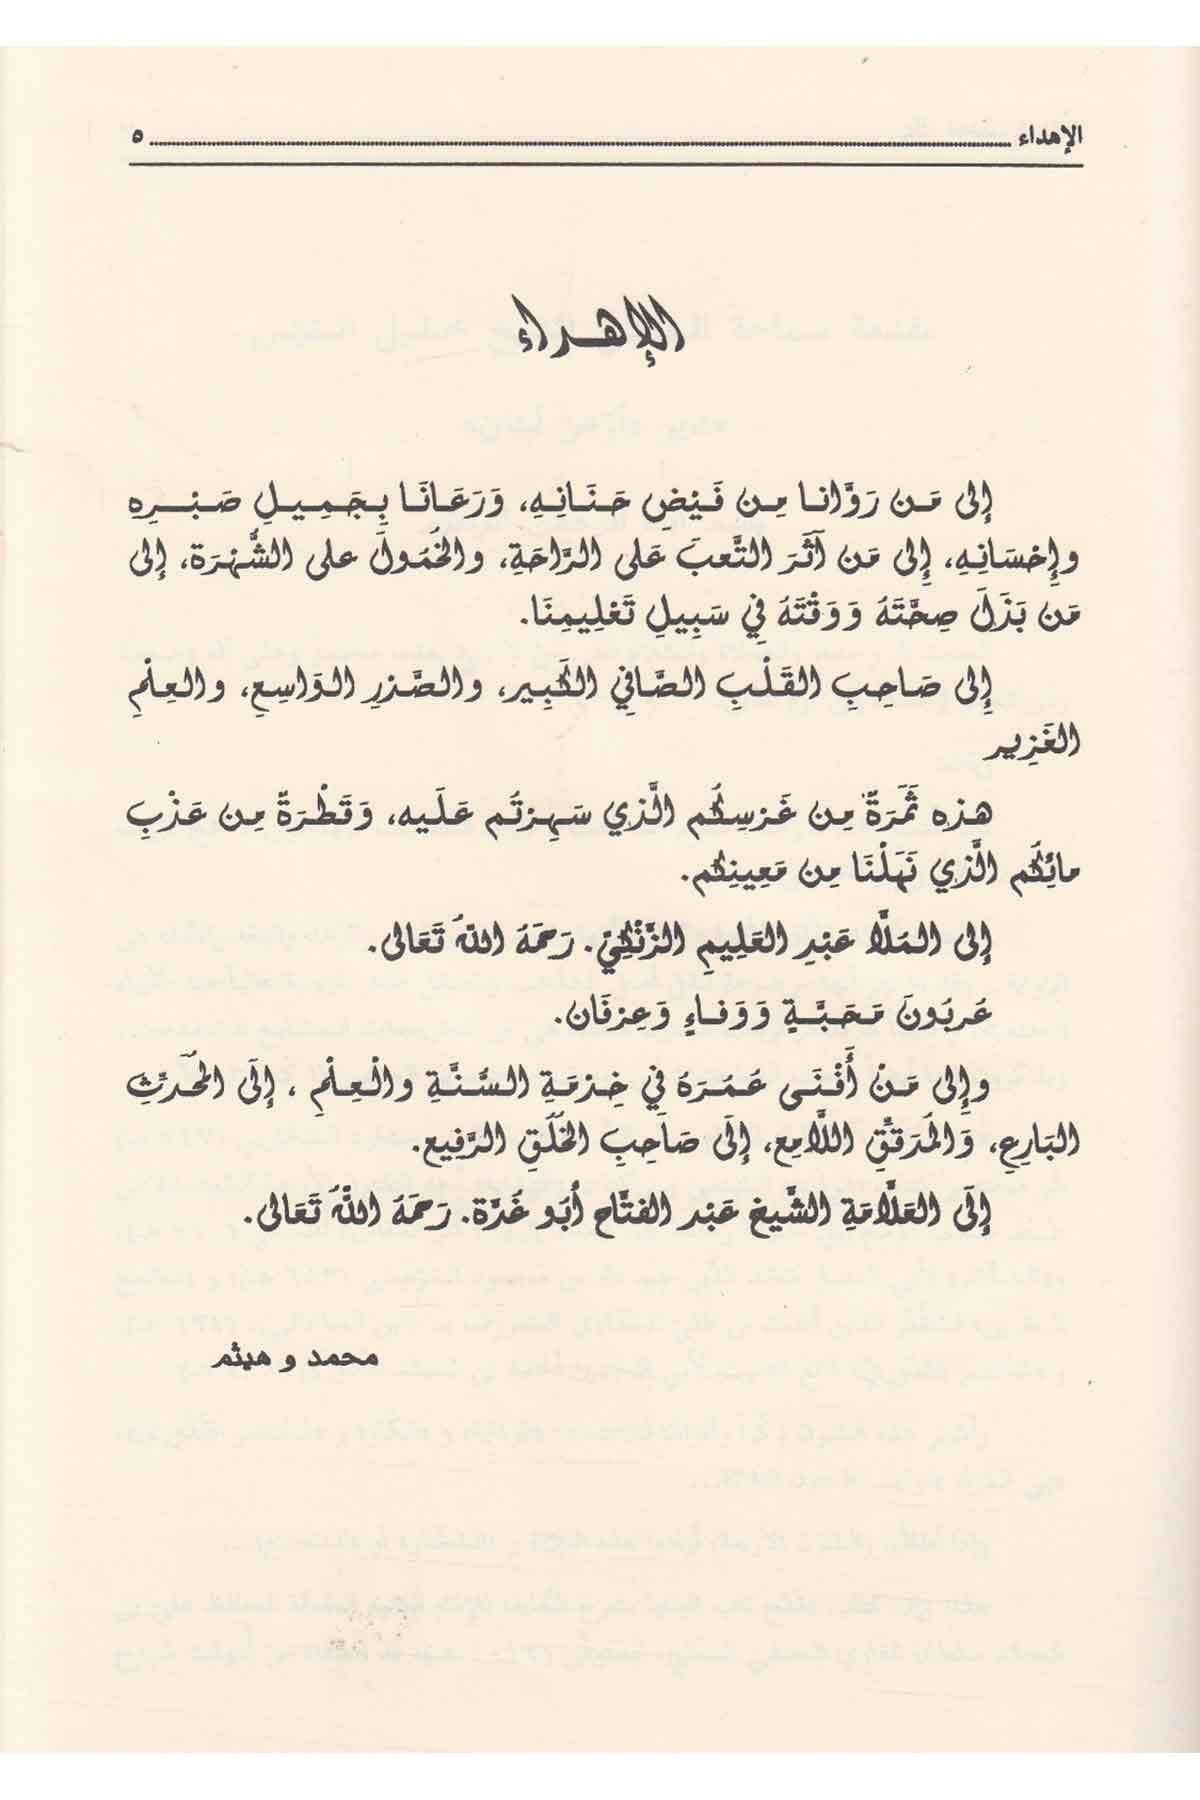 الإهداء ........................ ٥
الإهداء
إلى مَن رَوَّانا مِن فَيْضِ حَنَانِهِ، وَرَعَانَا بِجَمِيلِ صَبْرِهِ
وإِحْسَانِهِ، إِلى مَن آثَرَ التَّعبَ عَلى الرَّاحَةِ، والخُمُولَ على الشُّهْرَة، إلى
مَن بَذَلَ صِحَّتَهُ وَوَقْتَهُ فِي سَبِيلِ تَعْلِيمِنَا.
إِلى صَاحِبِ القَلْبِ الصَّافِي الكَبِير، والصَّدْرِ الوَاسِعِ، والعِلْمِ
الغَزِير
هذِه ثَمَرَةٌ مِن غَرْسِكُم الَّذِي سَهِرْتُم عَلَيه، وَقَطْرَةٌ مِن عَذْبِ
مائِكُم الَّذِي نَهَلْنَا مِن مَعِينِكُم.
إلى المُلَّا عَبْدِ العَلِيمِ الزَّنْكِيّ. رَحِمَهُ اللَّهُ تَعَالى.
عَربُونَ مَحَبَّةٍ وَوَفاءٍ وَعِرْفَان.
وإِلى مَنْ أَفْنَى عُمُرَهُ في خِدْمَةِ السُّنَّةِ والْعِلْمِ ، إِلَى المُحَدِّثِ
البَارِعِ، وَالمُدَقِّقِ اللَّامِعِ، إِلَى صَاحِبِ الخُلُقِ الرَّفِيع.
إِلَى العَلَّامَةِ الشَّيخ عَبْد الفتَّاح أبُو غُدَّة. رَحِمَهُ اللَّهُ تَعَالى.
محمد و هيثم